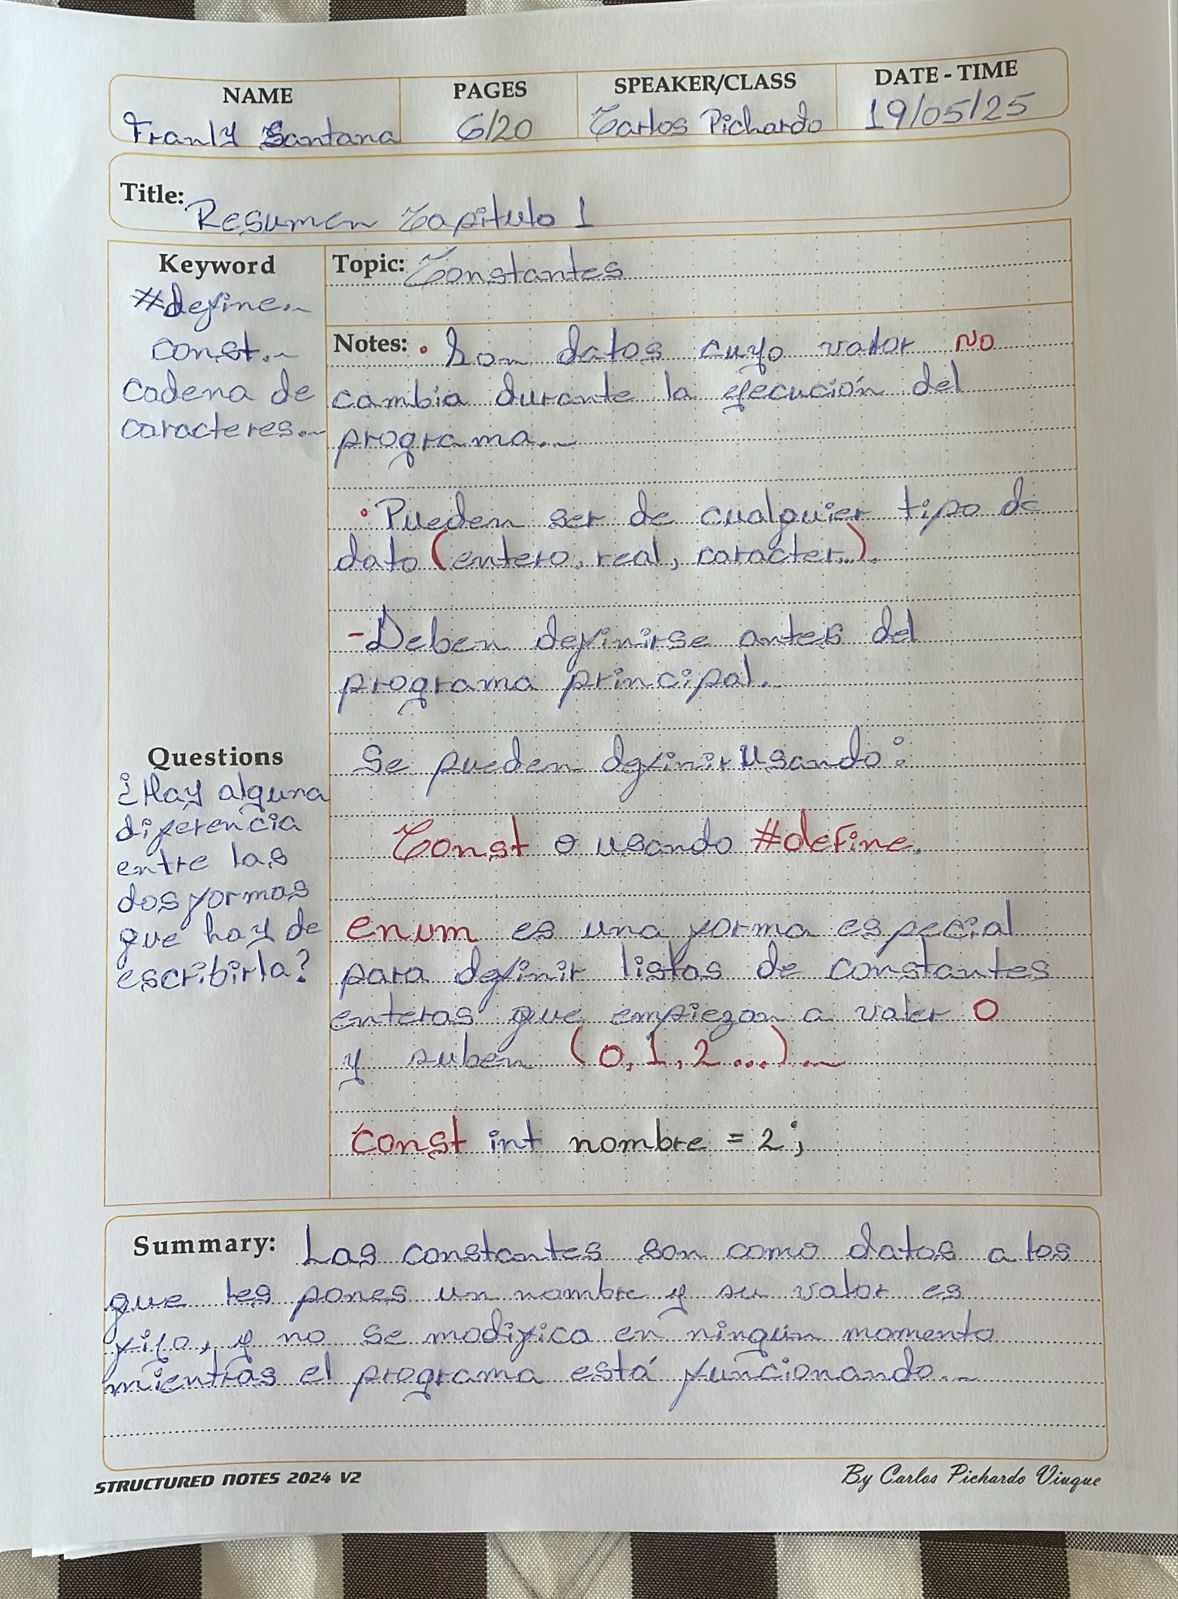 NAME PAGES SPEAKER/CLASS DATE - TIME
Franly Santana 6/20 Carlos Pichardo 19/05/25
Title: Resumen Capitulo 1
Keyword
#define.
const.
cadena de
caracteres.
Topic: Constantes
Notes: • Son datos cuyo valor NO
cambia durante la ejecución del
programa.
• Pueden ser de cualquier tipo de
dato (entero, real, caracter..).
- Deben definirse antes del
programa principal.
Se pueden definir usando:
Const o usando #define.
enum es una forma especial
para definir listas de constantes
enteras que empiezan a valer 0
y suben (0, 1, 2...).
const int nombre = 2;
Questions
¿Hay alguna
diferencia
entre las
dos formas
que hay de
escribirla?
Summary: Las constantes son como datos a los
que les pones un nombre y su valor es
fijo, y no se modifica en ningún momento
mientras el programa está funcionando.
STRUCTURED NOTES 2024 V2
By Carlos Pichardo Viuque